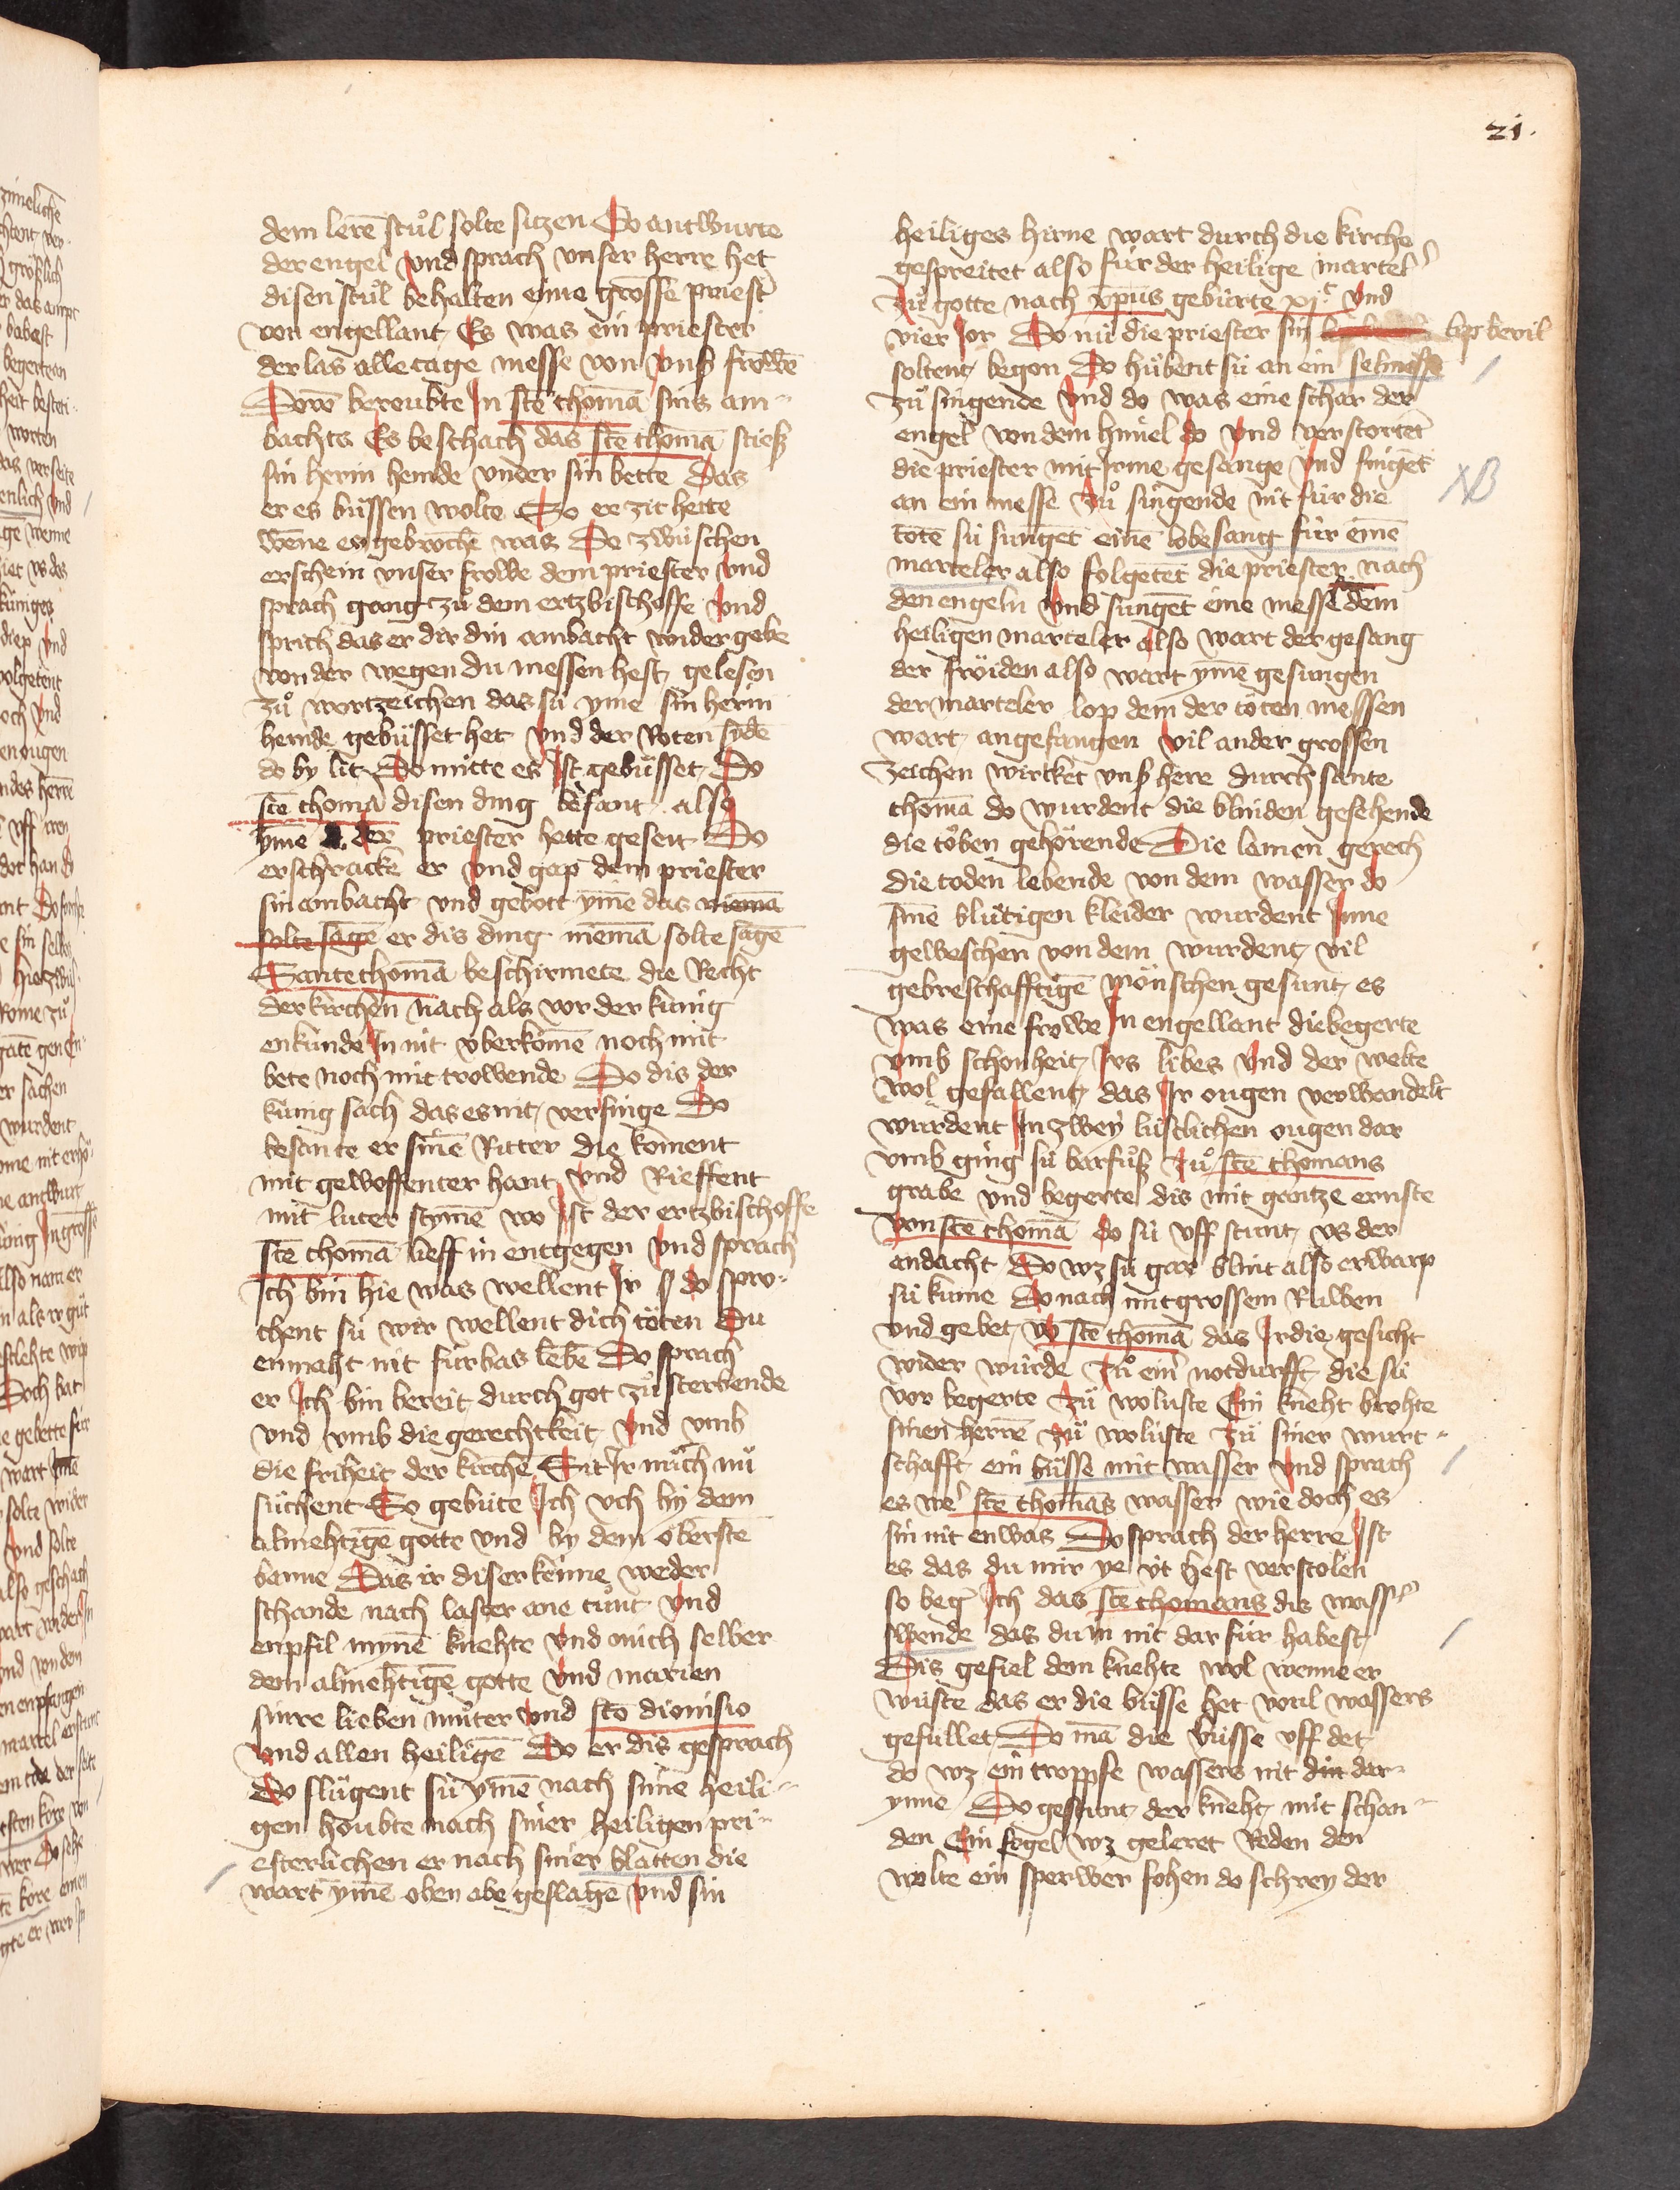 21.
dem lere̅ stuͦl solte sitzen Do antwurte
der engel vnd sprach vnser herre het
disen stuͦl behalten eime grosse̅ priest̛
von engellant Es was ein priester
der las alle tage messe von vns̛ frowe̅
Dere̅ beroubte In ste̅ thoma̅ sins am-
bachts Es beschach das ste̅ thoma̅ stiesz
sin herin hemde vnder sin bette Das
er es buͤssen wolte So er zit hette
wene es gebroche̅ was Do zwuͤschen
erschein vnser frowe dem priester vnd
sprach gang zuͦ dem ertzbischoffe vnd
sprich das er dir din ambacht wider gebe
von der wegen du messen hest gelesen
zuͦ wortzeichen das suͤ yme sin herin
hemde gebuͤsset het vnd der Roten syde̅
do by lit Do mitte es Ist gebuͤsset Do
ste̅ thoma̅ disen ding befant also
yme̅ der priester hette geseit Do
erschracke er vnd gap dem priester
sin ambacht vnd gebott yme̅ das niema̅
solte sage̅ er dis ding niema̅ solte sage̅
Sante thoma̅ beschirmete die Recht
der kirchen nach als vor der kuͤnig
enkunde In nit vberkome̅ noch mit
bete noch mit trowende Do dis der
kuͤnig sach das es nit verfinge Do
besante er sine̅ Ritter die koment
mit gewoffenter hant vnd Rieffent
mit luter styme̅ wo Ist der ertzbischoffe
ste̅ thoma̅ lieff in entgegen vnd sprach
Ich bin hie was wellent Ir do spro-
chent suͤ wir wellent dich toͤten Du
enmaht nit fuͤrbas lebe̅ Do sprach
er Ich bin bereit durch got zuͦ sterbende
vnd vmb die gerechtkeit vnd vmb
die friheit der kirche̅ Sit Ir mich nuͦ
suͦchent So gebuͤte Ich vch by dem
almehtige̅ gotte vnd by dem oberste̅
banne Das ir diser keime weder
schande nach laster ane tuͦnt vnd
enpfil myne̅ knehte vnd mich selber
dem almehtige̅ gotte vnd marien
sinre lieben muͦter vnd sto̅ dionisio
vnd allen heilige̅ Do er dis gesprach
do sluͦgent suͤ yme̅ nach sime heili-
gen houbte nach siner heiligen pri-
esterlichen er nach siner blatten die
wart yme̅ oben abe geslage̅ vnd sin
heiliges hirne wart durch die kirche
gespreitet also fuͦr der heilige martel̛
zuͦ gotte nach xp̅us geburte xjc vnd
vier Jor Do nuͦ die priester sin lip bevil
soltent begon Do huͦbent suͤ an ein selmesse
zuͦ singende vnd do was eine schar der
engel von dem himel do vnd verstortet
die priester mit Irme gesange vnd fingēt
an ein messe zuͦ singende nit fuͤr die
tote̅ suͤ sunge̅t eine̅ lobesang fuͤr eine̅
marteler also folgete̅t die priester nach
den engeln vnd sunge̅t eine messe dem
heiligen marteler also wart der gesang
der froͤiden also wart yme̅ gesungen
der marteler lop dem der toten messen
wart angefangen vil ander grossen
zeichen wircket vns̛ here durch sante
thoma̅ do wurdent die blinden gesehende
die toͮben gehoͤrende Die lamen gerech
die toden lebende von dem wasser do
sine̅ bluͤtigen kleider wurdent Inne
geweschen von dem wurdent vil
gebreschafftige̅ moͤnschen gesunt es
was eine frowe In engellant die begerte
vmb schonheit Irs libes vnd der welte
wol gefallent das Ir ougen verwandelt
wurdent In zwey lustlichen ougen dar
vmb ging suͤ barfuͦsz zuͦ ste̅ thomans
grabe vnd begerte dis mit gantze ernste
von ste̅ thoma̅ do suͤ vff stunt vs der
andacht Do wz suͤ gar blint also erwarp
suͤ kume Do nach mit grossem Ruwen
vnd gebet vo̅ ste̅ thoma̅ das Ir die gesicht
wider wuͤrde zuͦ ein̛ notdurfft die suͤ
vor begerte zuͦ woluste Ein kneht brohte
sinen herre̅ zuͦ woluste zuͦ siner wurt-
schafft ein buͤsse mit wasser vnd sprach
es we̛ ste̅ thomas wasser wie doch es
sin nit enwas Do sprach der herre Ist
es das du mir ye uͤt hest verstolen
so beg̛ Ich das ste̅ thomans dis wass̛
swende das du in nit dar fuͤr habest
Dis gefiel dem knehte wol wenne er
wuste das er die buͤsse het voul wassers
gefuͤllet Do ma̅ die buͤsse vff det
do wz ein troppfe wassers nit din dar-
ynne Do gestunt der kneht mit schan-
den Ein fogel wz geleret Reden den
wolte ein sperwer fohen do schrey der
NB